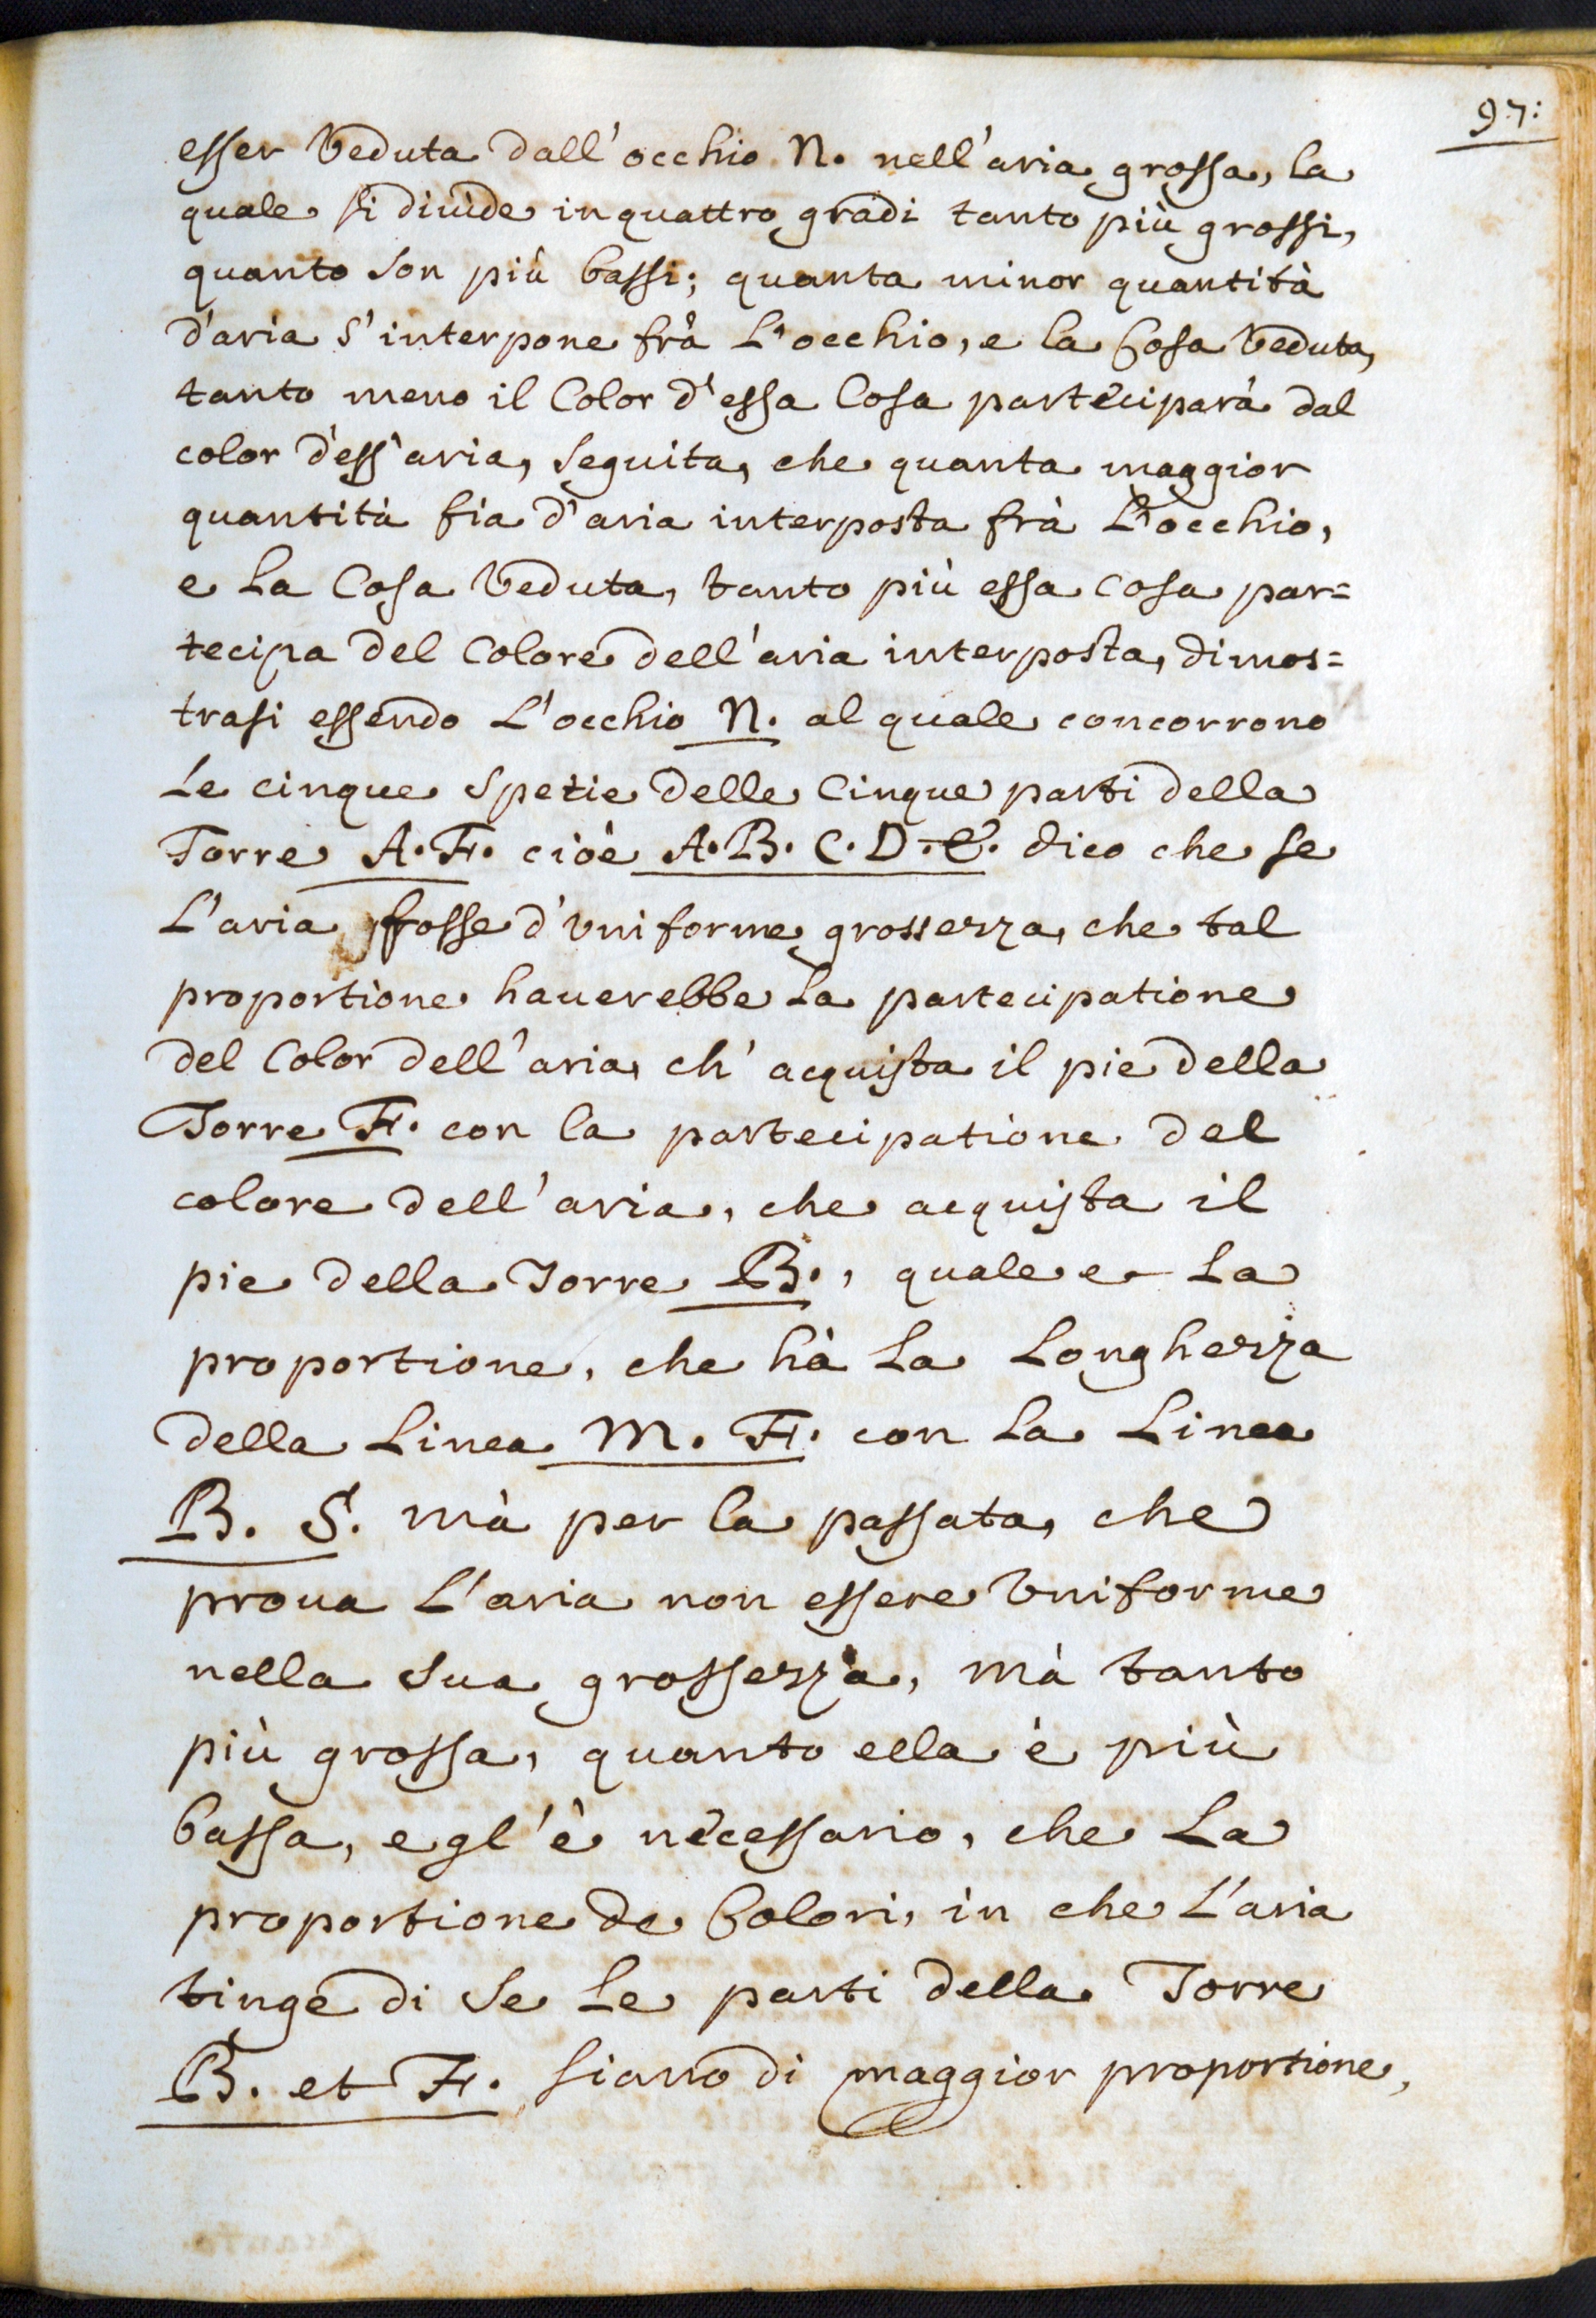 97:
esser Veduta dall'occhio N. nell'aria grossa, la
quale si diuide in quattro gradi tanto più grossi,
quanto son più bassi; quanta minor quantità
d'aria s'interpone frà L'occhio, e la Cosa Veduta,
tanto meno il Color d'essa Cosa parteciparà dal
color d'ess'aria, seguita, che quanta maggior
quantità fia d'aria interposta frà L'occhio,
e La Cosa Veduta, tanto più essa cosa par=
tecipa del Colore dell'aria interposta, dimos=
trasi essendo L'occhio N. al quale concorrono
Le cinque spetie delle Cinque parti della
Torre A.F. cioè A.B.C.D.E. dico che se
L'aria fosse d'Vniforme grossezza, che tal
proportione hauerebbe La partecipatione
del Color dell'aria, ch'acquista il pie della
Torre F. con la partecipatione del
colore dell'aria, che acquista il
pie della Torre B., quale e La
proportione, che hà La Longhezza
della Linea M. F. con La Linea
B. S. mà per la passata, che
proua L'aria non essere Vniforme
nella sua grossezza, mà tanto
più grossa, quanto ella è più
bassa, egl'è necessario, che La
proportione de Colori, in che L'aria
tinge di se Le parti della Torre
B. et F. siano di maggior proportione,